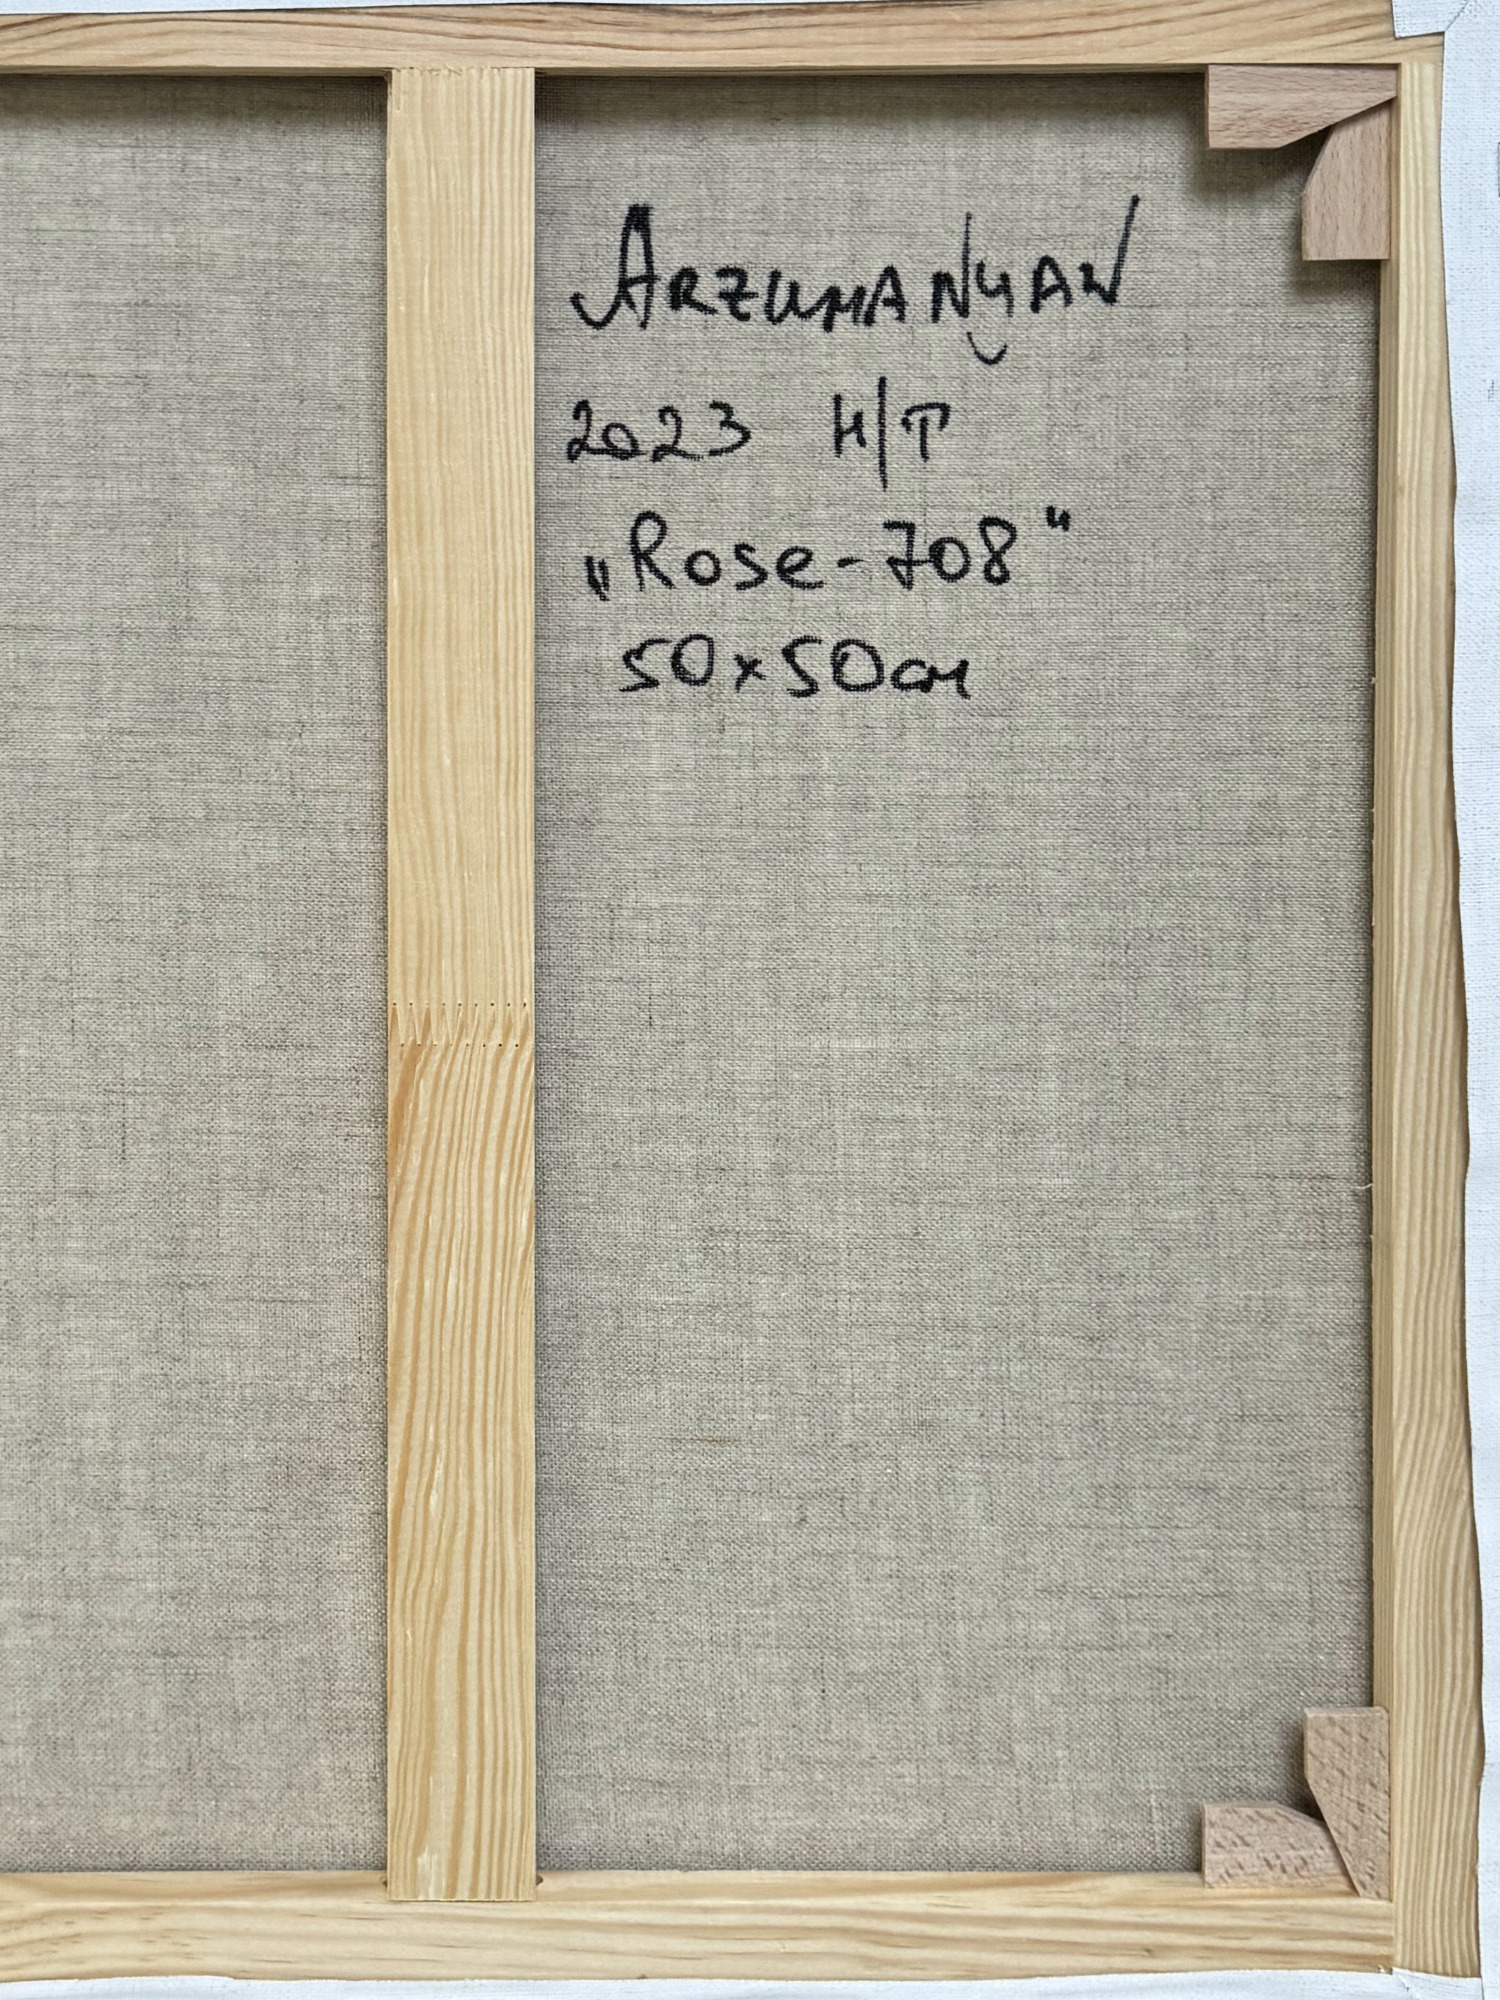 ARZUMANYAN
2023 H/T
„Rose-708"
50x50см